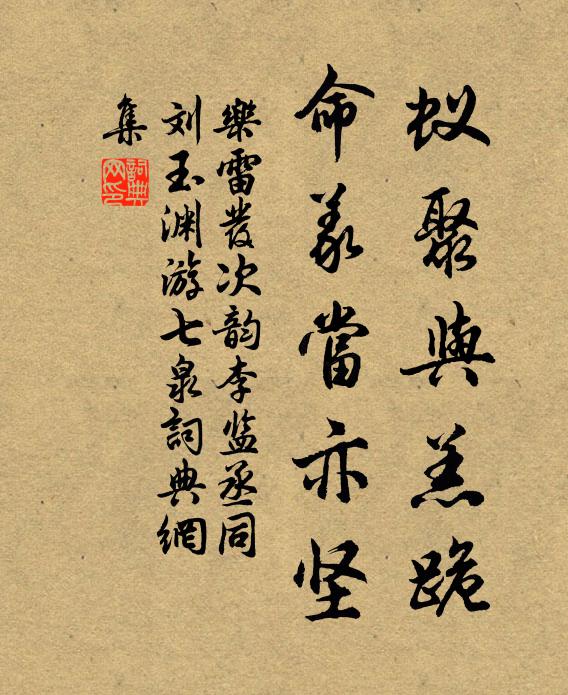 蚁聚與羔跪
命義當亦坚
樂雷發次韵李监丞同
刘玉渊游七泉詞典網
集
詞典
网印